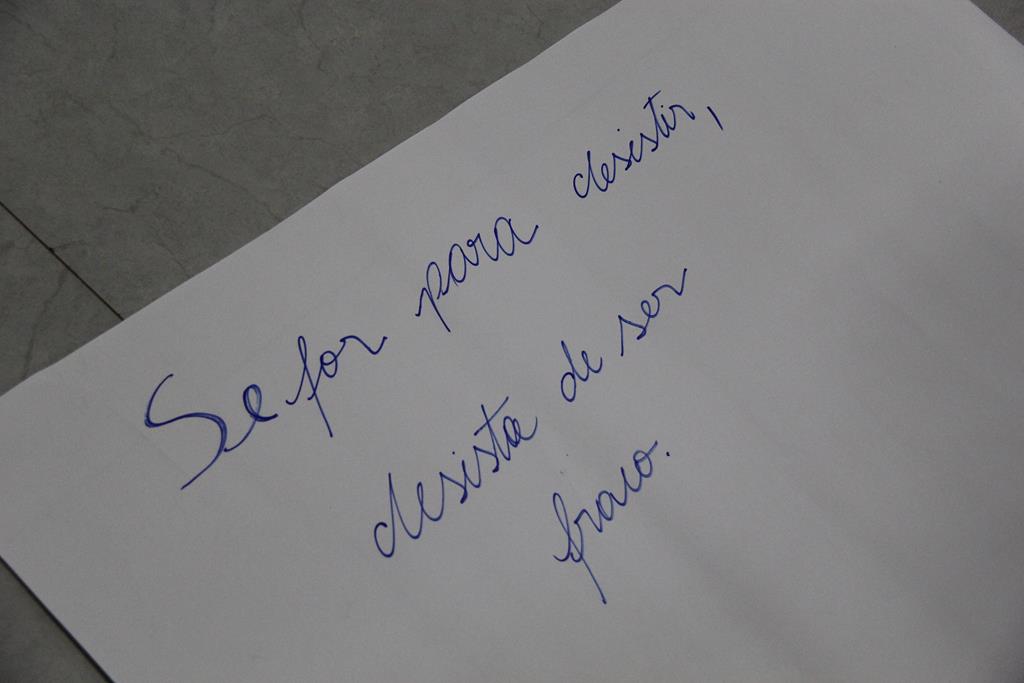 Se for para desistir,
desista de ser
fraco.